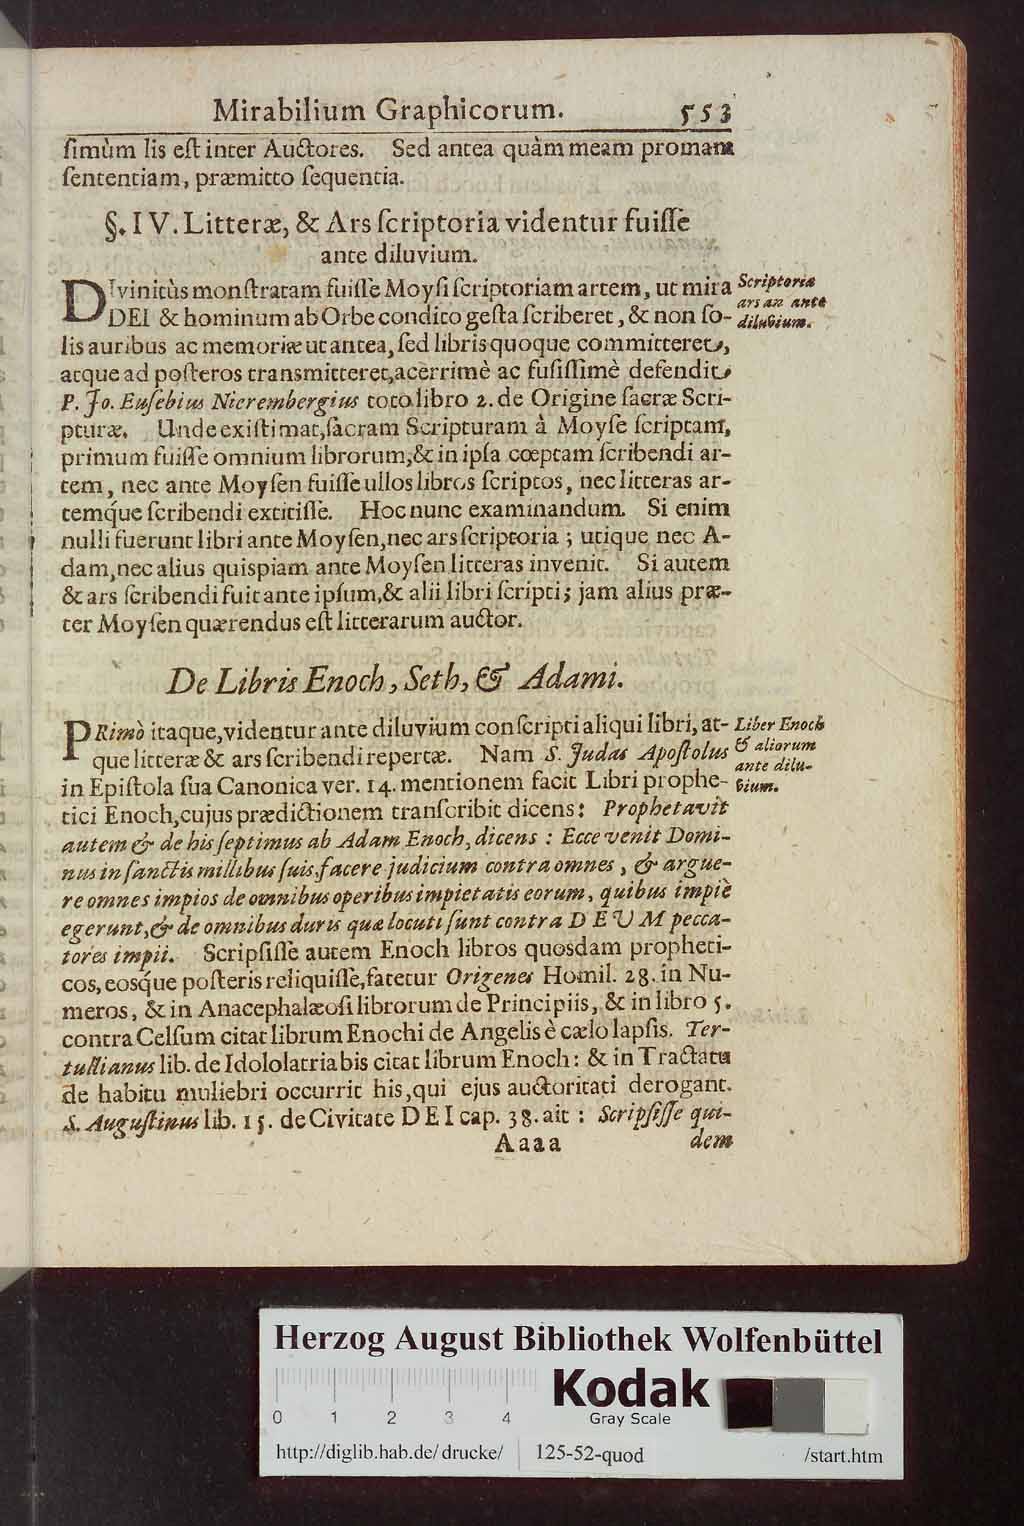 Mirabilium Graphicorum. 553
ſimùm lis eſt inter Auctores. Sed antea quàm meam promam
ſententiam, præmitto ſequentia.
§. IV. Litteræ, & Ars ſcriptoria videntur fuiſſe
ante diluvium.
DIvinitùs monſtratam fuiſſe Moyſi ſcriptoriam artem, ut mira
DEI & hominum ab Orbe condito geſta ſcriberet, & non ſo-
lis auribus ac memoriæ ut antea, ſed libris quoque committeret,
atque ad poſteros transmitteret, acerrimè ac fuſiſſimè defendit
P. Jo. Euſebius Nierembergius toto libro 2. de Origine ſacræ Scri-
pturæ. Unde exiſtimat, ſacram Scripturam à Moyſe ſcriptam,
primum fuiſſe omnium librorum, & in ipſa cœptam ſcribendi ar-
tem, nec ante Moyſen fuiſſe ullos libros ſcriptos, nec litteras ar-
temq́ue ſcribendi extitiſſe. Hoc nunc examinandum. Si enim
nulli fuerunt libri ante Moyſen, nec ars ſcriptoria ; utique nec A-
dam, nec alius quispiam ante Moyſen litteras invenit. Si autem
& ars ſcribendi fuit ante ipſum, & alii libri ſcripti; jam alius præ-
ter Moyſen quærendus eſt litterarum auctor.
Scriptoria
ars an ante
diluvium.
De Libris Enoch, Seth, & Adami.
PRimò itaque, videntur ante diluvium conſcripti aliqui libri, at-
que litteræ & ars ſcribendi repertæ. Nam S. Judas Apoſtolus
in Epiſtola ſua Canonica ver. 14. mentionem facit Libri prophe-
tici Enoch, cujus prædictionem tranſcribit dicens: Prophetavit
autem & de his ſeptimus ab Adam Enoch, dicens : Ecce venit Domi-
nus in ſanctis millibus ſuis, facere judicium contra omnes, & argue-
re omnes impios de omnibus operibus impietatis eorum, quibus impiè
egerunt, & de omnibus duris quæ locuti ſunt contra DEUM pecca-
tores impii. Scripſiſſe autem Enoch libros quosdam propheti-
cos, eosq́ue poſteris reliquiſſe, fatetur Origenes Homil. 28. in Nu-
meros, & in Anacephalæoſi librorum de Principiis, & in libro 5.
contra Celſum citat librum Enochi de Angelis è cælo lapſis. Ter-
tullianus lib. de Idololatria bis citat librum Enoch: & in Tractatu
de habitu muliebri occurrit his, qui ejus auctoritati derogant.
S. Auguſtinus lib. 15. de Civitate DEI cap. 38. ait : Scripſiſſe qui-
Liber Enoch
& aliorum
ante dilu-
vium.
Aaaa dem
Herzog August Bibliothek Wolfenbüttel
Kodak
Gray Scale
0 1 2 3 4
http://diglib.hab.de/drucke/ 125-52-quod /start.htm